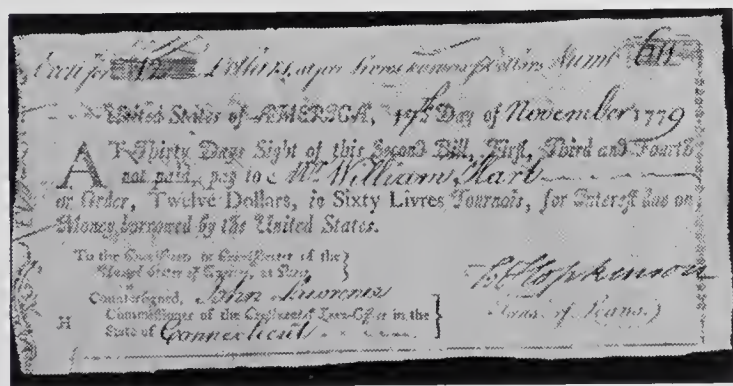 Exchange for 12 Dollars, at five Livres Tournois per Dollar, Numb 611
United States of AMERICA, 17th Day of November 1779
AT Thirty Days Sight of this Second Bill, First, Third and Fourth
not paid, pay to Mr. William Hart
or Order, Twelve Dollars, in Sixty Livres Tournois, for Interest due on
Money borrowed by the United States.
To the Commissioner or Commissioners of the
United States of America, at Paris
Countersigned, John Lawrence
Commissioner of the Continental Loan-Office in the
State of Connecticut
H
F Hopkinson
Treas. of Loans.